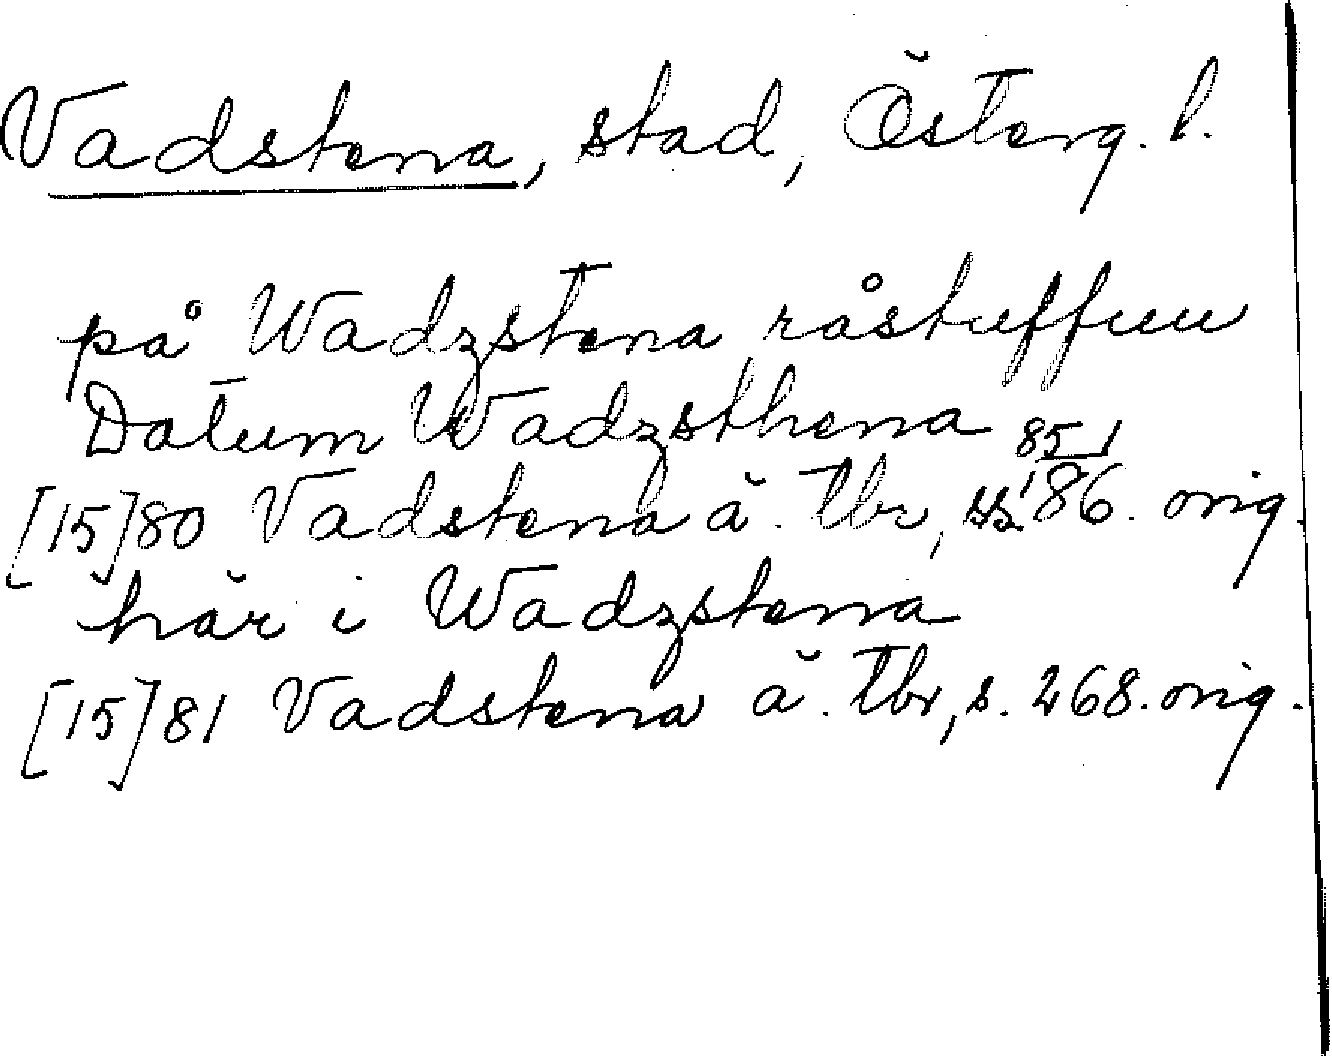 Vadstena, stad, Österg. l.
på Wadzstena råstuffuu
Datum Wadzsthena
[15]80 Vadstena ä. tbr, ss. 85, 86. orig.
här i Wadzstena
[15]81 Vadstena ä. tbr, s. 268. orig.